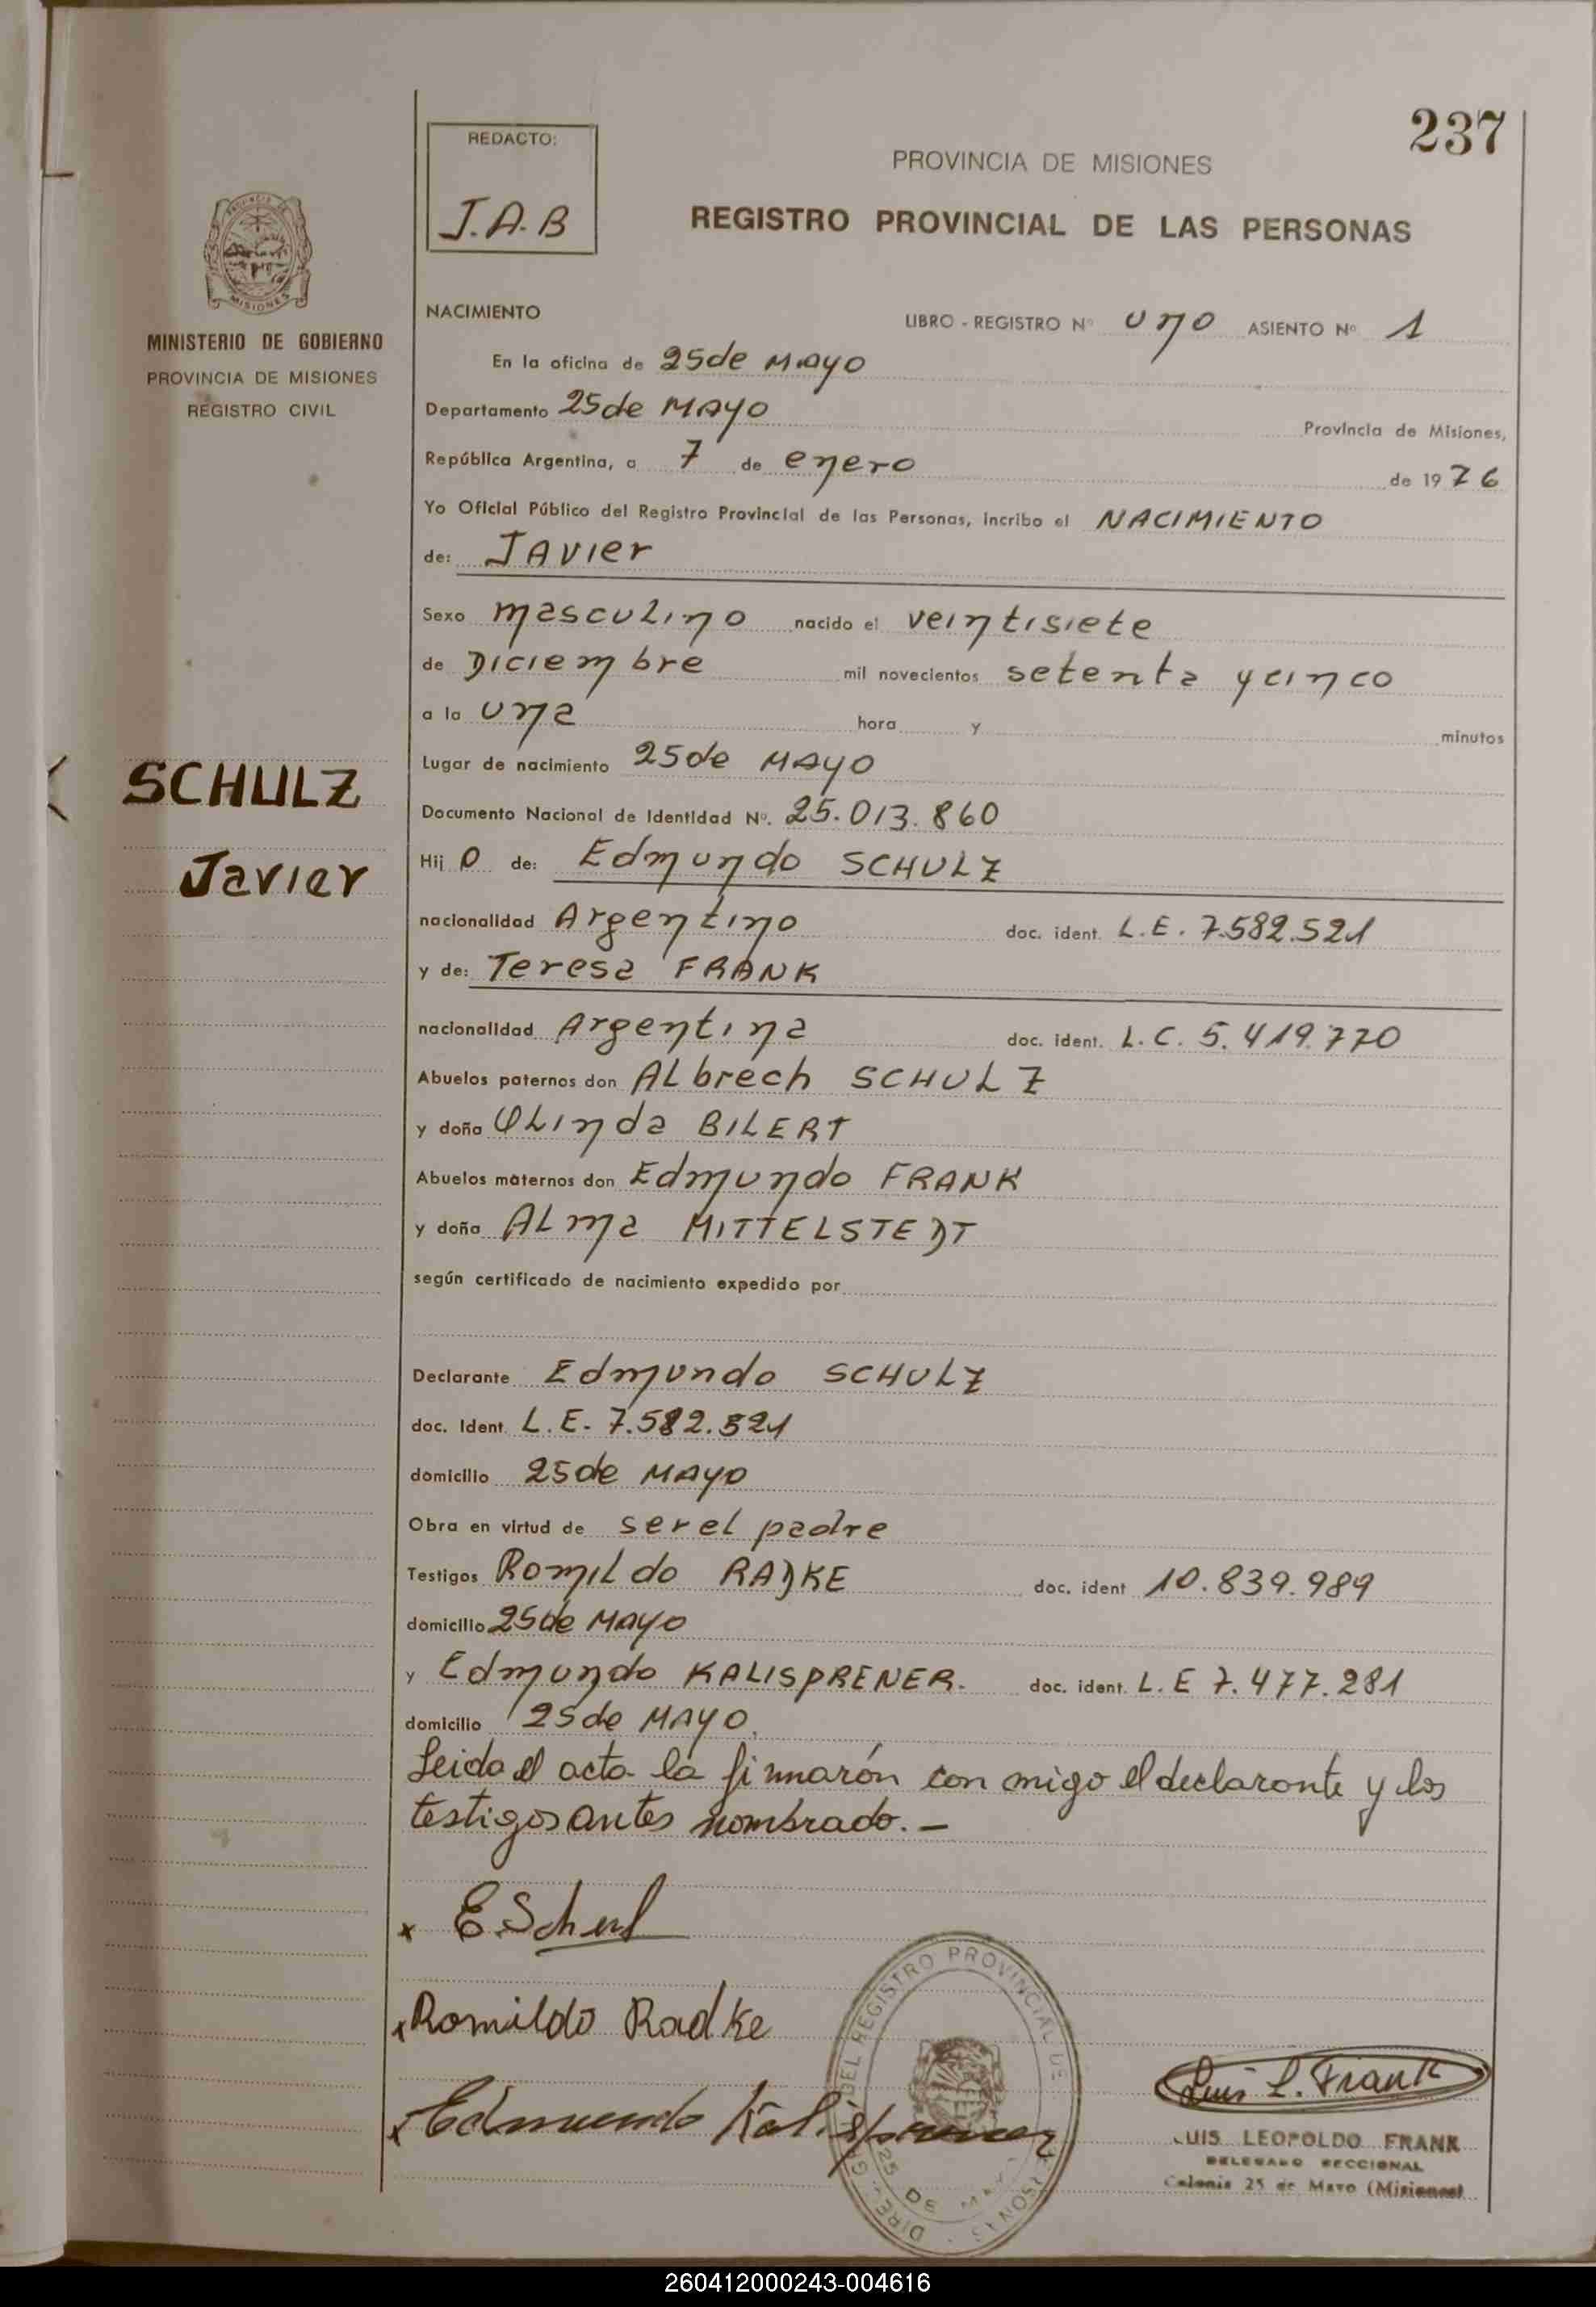 237
REDACTO:
J.A.B
PROVINCIA DE MISIONES
REGISTRO PROVINCIAL DE LAS PERSONAS
MISIONES
MINISTERIO DE GOBIERNO
PROVINCIA DE MISIONES
REGISTRO CIVIL
NACIMIENTO
LIBRO - REGISTRO Nº uno ASIENTO Nº 1
En la oficina de 25 de MAYO
Departamento 25 de MAYO Provincia de Misiones,
República Argentina, a 7 de enero de 1976
Yo Oficial Público del Registro Provincial de las Personas, incribo el NACIMIENTO
de: JAVIer
Sexo masculino nacido el veintisiete
de Diciembre mil novecientos setenta y cinco
a la una hora y minutos
Lugar de nacimiento 25 de MAYO
SCHULZ
Documento Nacional de Identidad Nº. 25.013.860
Javier
Hijo de: Edmundo SCHULZ
nacionalidad Argentino doc. ident. L.E. 7.582.521
y de: Teresa FRANK
nacionalidad Argentina doc. ident. L.C. 5.419.770
Abuelos paternos don ALbrech SCHULZ
y doña OLinda BILERT
Abuelos maternos don Edmundo FRANK
y doña ALma MITTELSTEDT
según certificado de nacimiento expedido por
Declarante Edmundo SCHULZ
doc. Ident. L.E. 7.582.521
domicilio 25 de MAYO
Obra en virtud de ser el padre
Testigos Romildo RADKE doc. ident 10.839.989
domicilio 25 de MAYO
y Edmundo KALISPRENER. doc. ident. L.E 7.477.281
domicilio 25 de MAYO.
Leida el acta la firmarón con migo el declarante y los
testigos antes nombrado. —
x E Schul
x Romildo Radke
x Edmundo Kalisprener
DIRE. G DEL REGISTRO PROVINCIAL DE
25 DE MAYO
Luis L. Frank
LUIS LEOPOLDO FRANK
DELEGADO SECCIONAL
Colonia 25 de Mayo (Misiones)
260412000243-004616